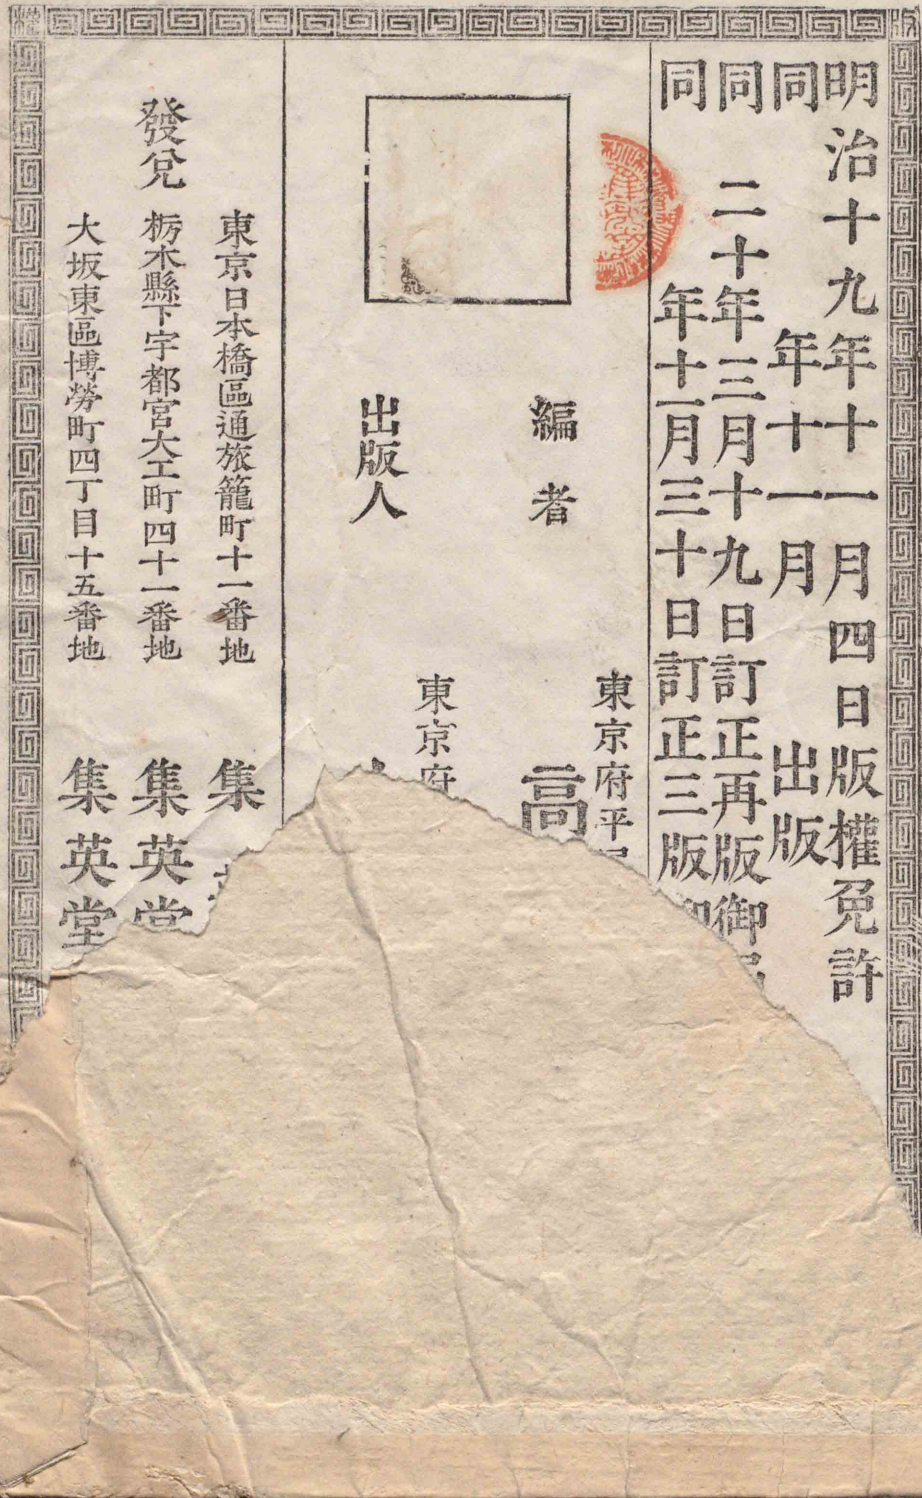 明治十九年十一月四日版權免許
同年十一月出版
同二十年三月十九日訂正再版御
同年十二月三十日訂正三版
東京府平
編者
高
東京府
出版人
發兌
東京日本橋區通旅籠町十一番地
集
栃木縣下宇都宮大工町四十一番地
集英堂
大坂東區博勞町四丁目十五番地
集英堂